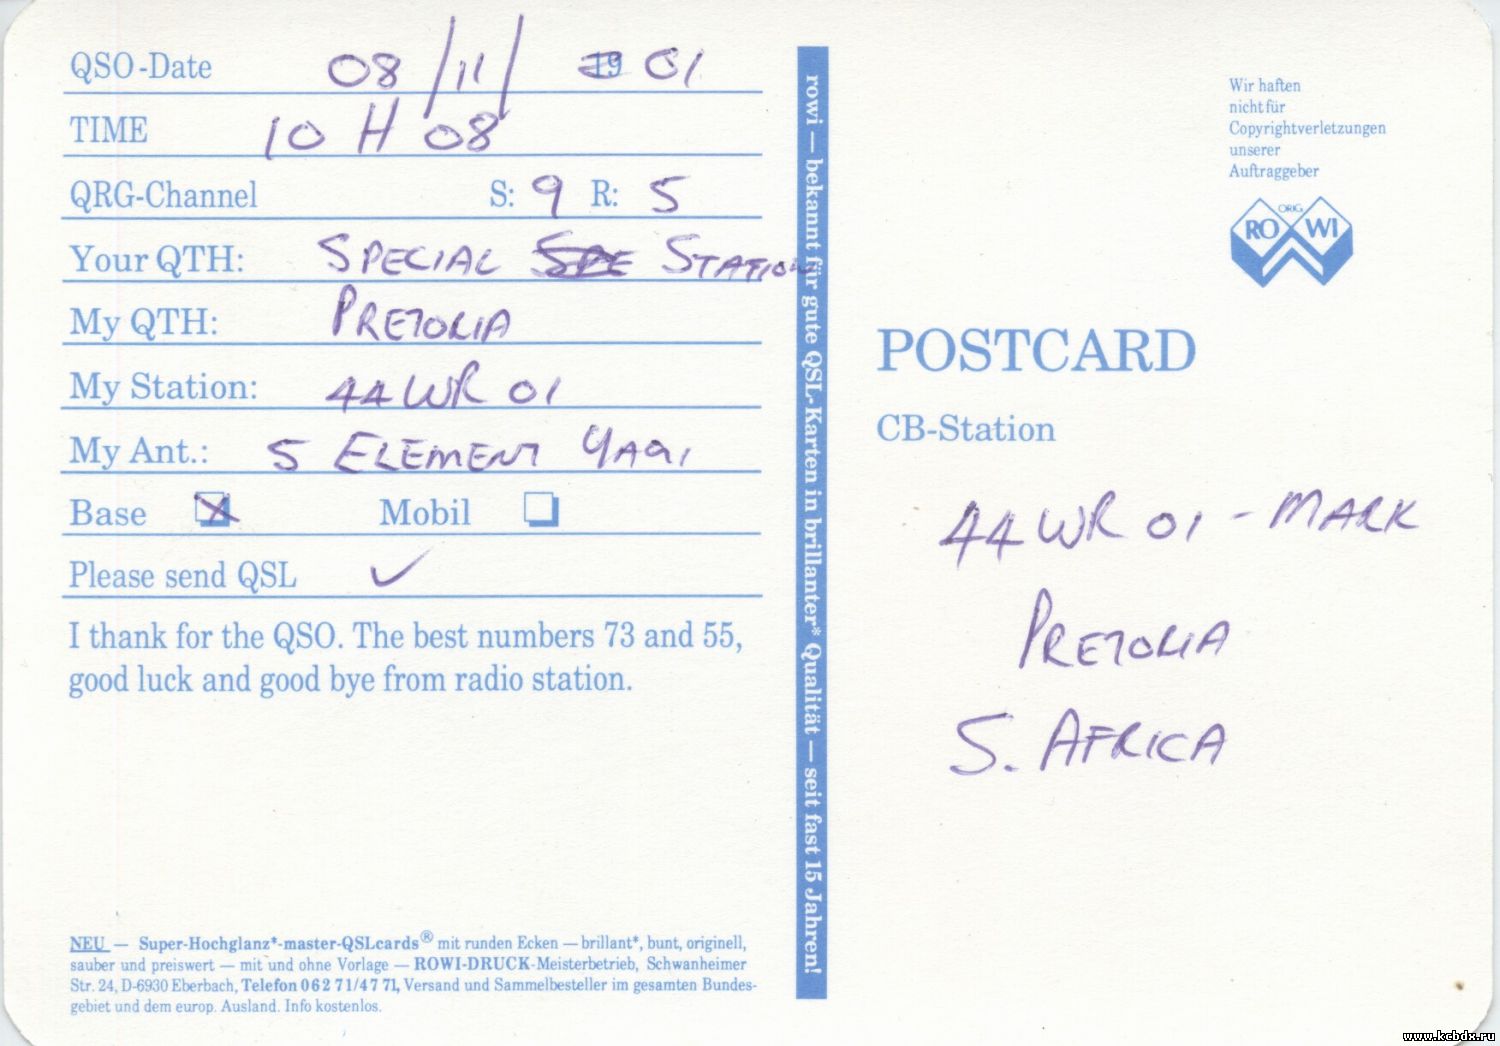 QSO-Date 08/11/ 19 01
TIME 10 H 08
QRG-Channel S: 9 R: 5
Your QTH: SPECIAL SPE STATION
My QTH: PRETORIA
My Station: 44 WR 01
My Ant.: 5 ELEMENT YAGI
Base Mobil
Please send QSL ✓
I thank for the QSO. The best numbers 73 and 55,
good luck and good bye from radio station.
NEU — Super-Hochglanz*-master-QSLcards® mit runden Ecken — brillant*, bunt, originell,
sauber und preiswert — mit und ohne Vorlage — ROWI-DRUCK-Meisterbetrieb, Schwanheimer
Str. 24, D-6930 Eberbach, Telefon 0 62 71/47 71, Versand und Sammelbesteller im gesamten Bundes-
gebiet und dem europ. Ausland. Info kostenlos.
rowi — bekannt für gute QSL-Karten in brillanter* Qualität — seit fast 15 Jahren!
Wir haften
nicht für
Copyrightverletzungen
unserer
Auftraggeber
ORIG.
RO WI
POSTCARD
CB-Station
44 WR 01 - MARK
PRETORIA
S. AFRICA
www.kcbdx.ru